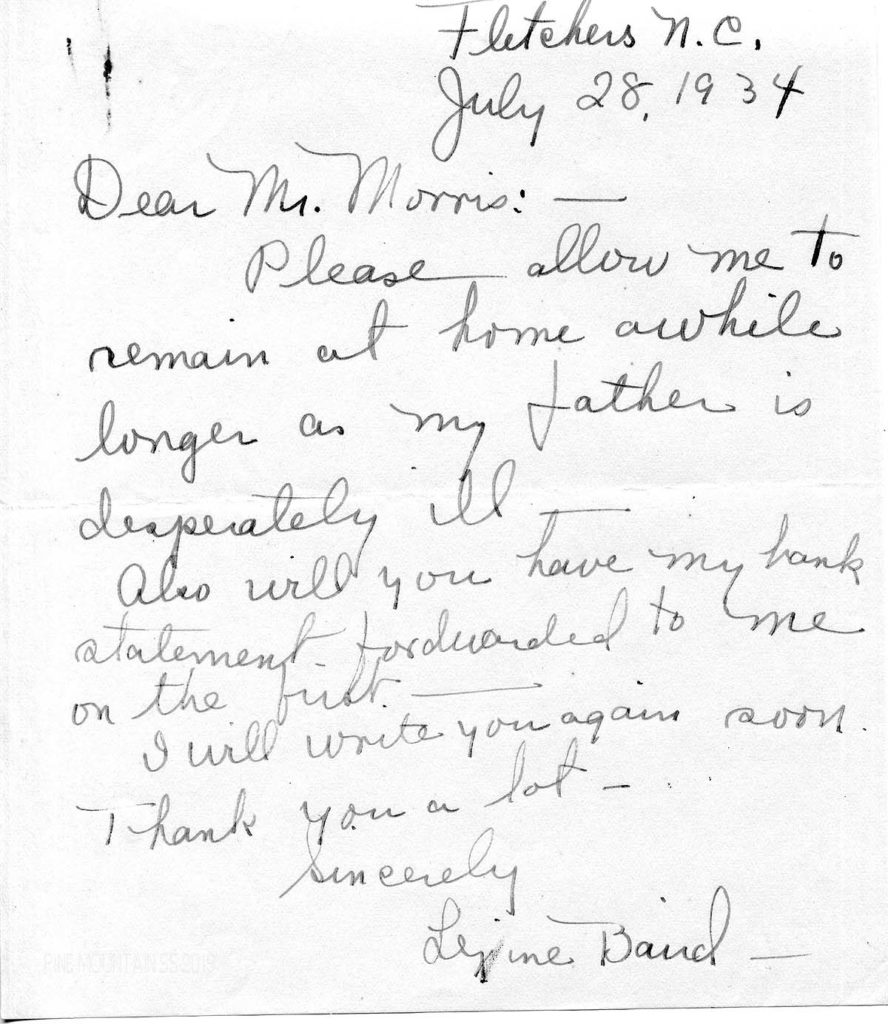 Fletchers N.C.
July 28, 1934
Dear Mr. Morris: —
Please allow me to
remain at home awhile
longer as my father is
desperately ill —
Also will you have my bank
statement forwarded to me
on the first. —
I will write you again soon.
Thank you a lot —
Sincerely
Baird —
PINE MOUNTAIN SS 2019